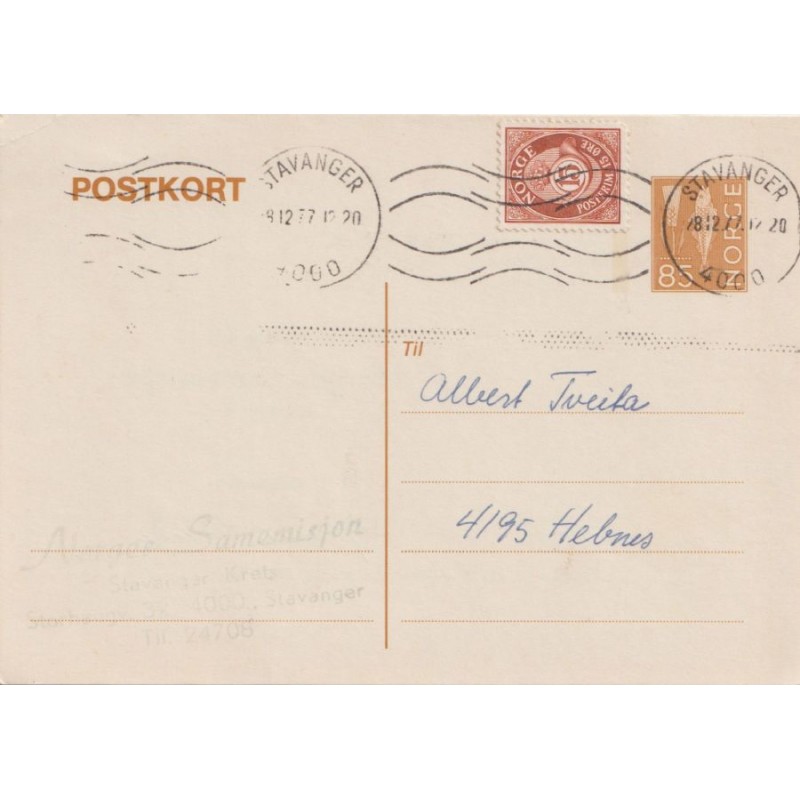 POSTKORT
STAVANGER
28.12.77.12 20
4000
NORGE
10
POSTFRIM. 15 ØRE
STAVANGER
28.12.77.12 20
4000
85
NORGE
Til
Albert Tveita
4195 Hebnes
Norges Samemisjon
Stavanger Krets
4000 Stavanger
Tlf. 24706